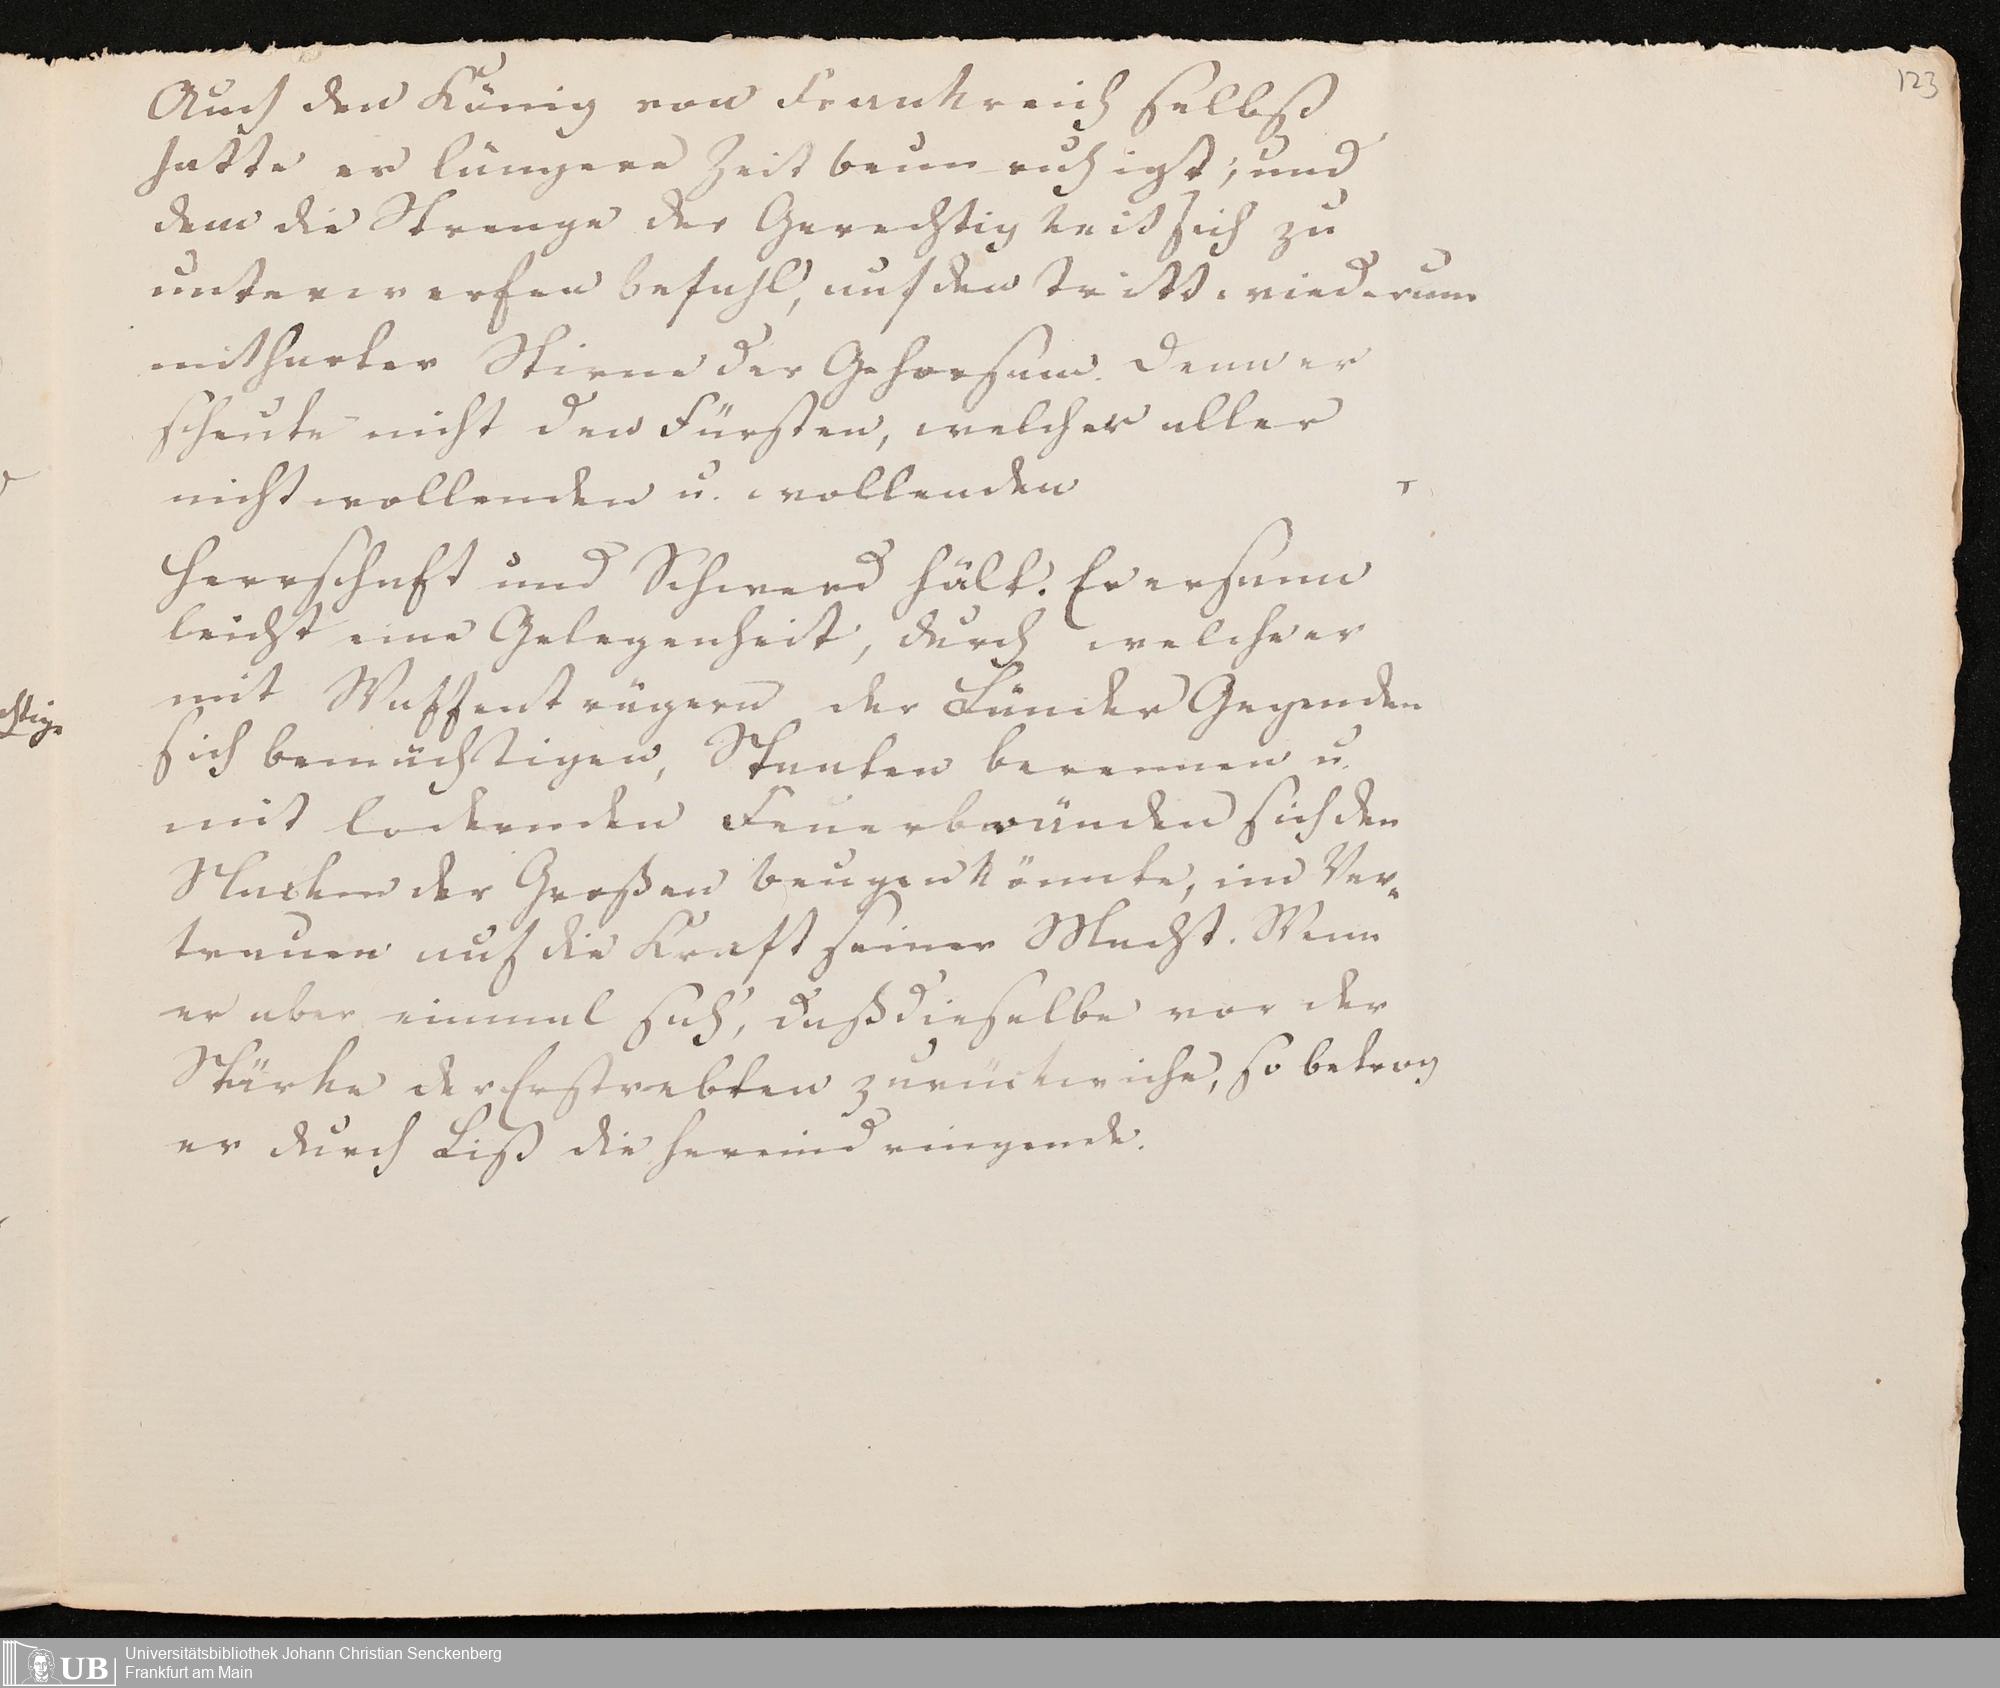 123
Auch den König von Frankreich selbst
hatte er längere Zeit beunruhigt; und
dem die Strenge der Gerechtigkeit sich zu
unterwerfen befahl, auf den tritt wiederum
mit harter Stirne der Gehorsam. Denn er
scheute nicht den Fürsten, welcher aller
nicht wollenden u. wollenden
Herrschaft und Schwerd hält. Er ersann
leicht eine Gelegenheit, durch welche er
mit Waffenträgern der Länder Gegenden
sich bemächtigen, Staaten berennen u.
mit lodernden Feuerbränden sich den
Nacken der Großen beugen könnte, im Ver-
trauen auf die Kraft seiner Macht. Wenn
er aber einmal sah, daß dieselbe vor der
Stärke der Erstrebten zurückwiche, so betrog
er durch List die hereindringende.
chtige
Universitätsbibliothek Johann Christian Senckenberg
Frankfurt am Main
UB